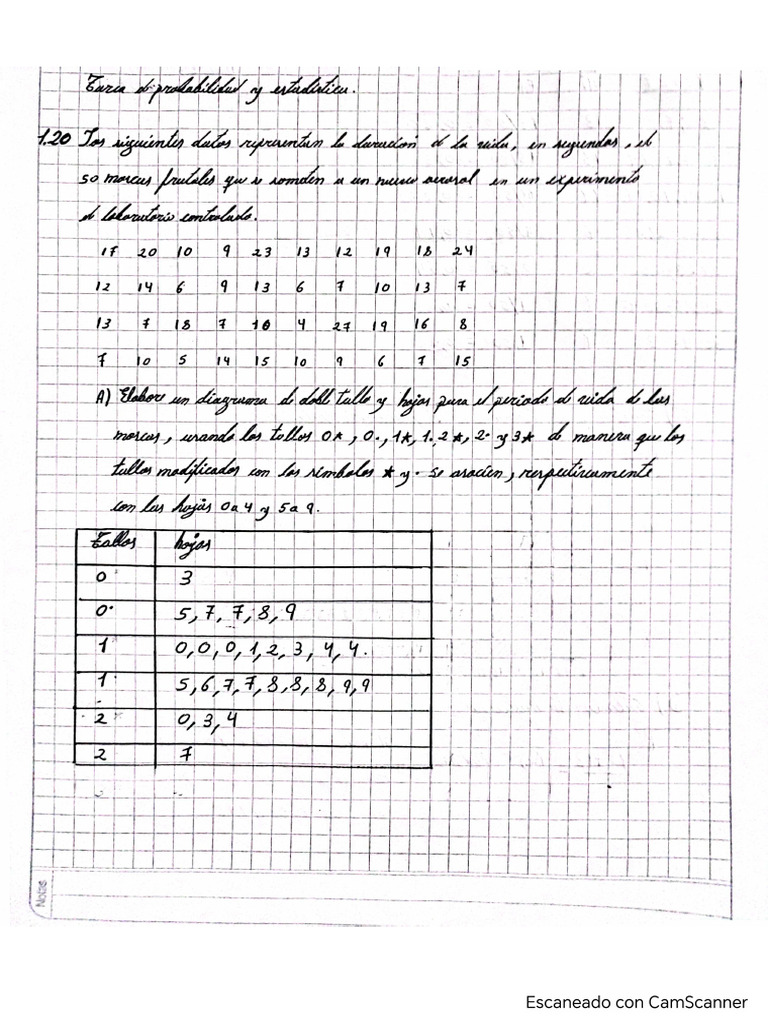 Tarea d probabilidad y estadística.
1.20 Los siguientes datos representan la duración d la vida, en segundos, d
50 moscas frutales que se someten a un nuevo aerosol en un experimento
d laboratorio controlado.
17 20 10 9 23 13 12 19 18 24
12 14 6 9 13 6 7 10 13 7
13 7 18 7 10 4 27 19 16 8
7 10 5 14 15 10 9 6 7 15
A) Elabore un diagrama d doble tallo y hojas para el periodo d vida d las
moscas, usando los tallos 0*, 0·, 1*, 1·, 2*, 2· y 3* d manera que los
tallos modificados con los símbolos * y · se asocien, respectivamente
con las hojas 0 a 4 y 5 a 9.
Tallos hojas
0* 3
0· 5, 7, 7, 8, 9
1* 0, 0, 0, 1, 2, 3, 4, 4.
1· 5, 6, 7, 7, 8, 8, 8, 9, 9
2* 0, 3, 4
2 7
Notas
Escaneado con CamScanner